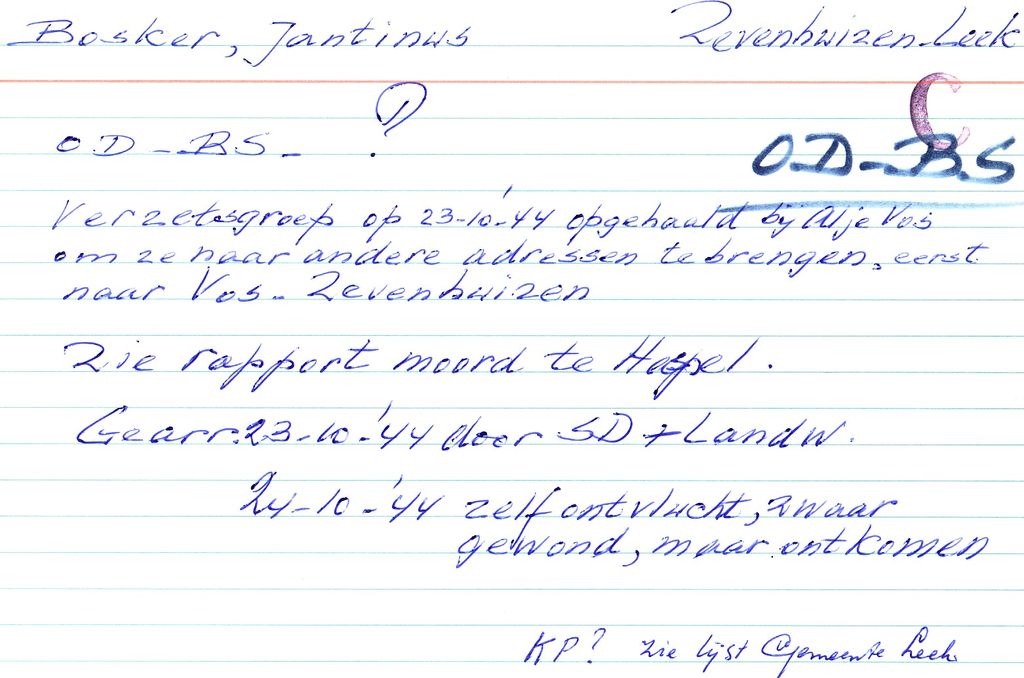 Bosker, Jantinus Zevenhuizen-Leek
C
OD-BS- ? OD-BS
Verzetsgroep op 23-10-'44 opgehaald bij Alje Vos
om ze naar andere adressen te brengen, eerst
naar Vos- Zevenhuizen
Zie rapport moord te Haspel.
Gearr. 23-10-'44 door SD + Landw.
24-10-'44 zelf ontvlucht, zwaar
gewond, maar ontkomen
KP? zie lijst Gemeente Leek